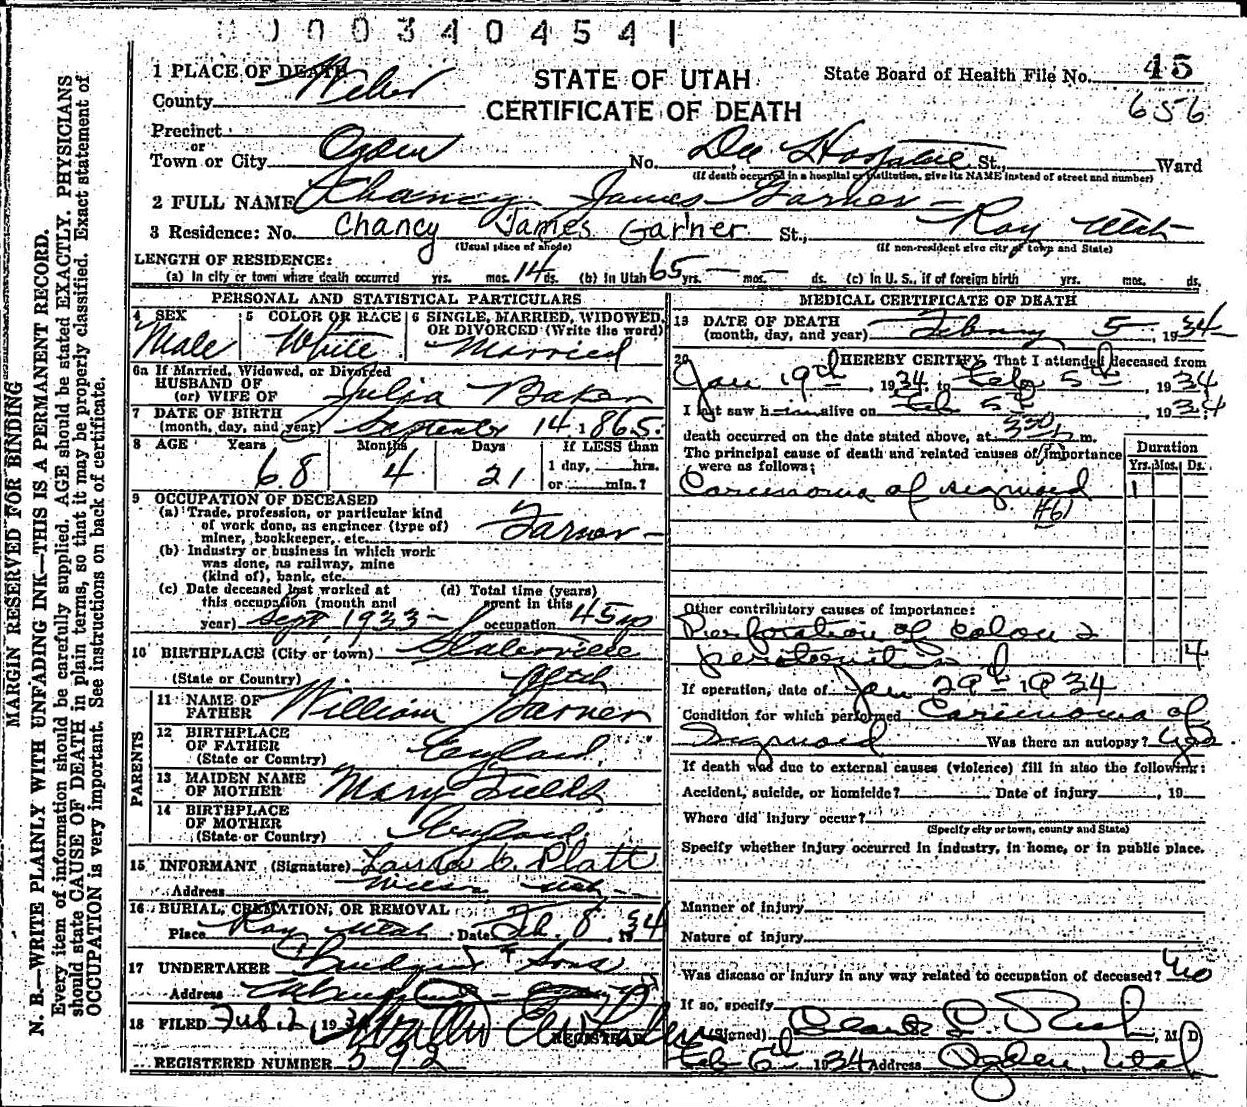 0003404541
1 PLACE OF DEATH
County Weber
STATE OF UTAH
CERTIFICATE OF DEATH
State Board of Health File No. 45
656
Precinct
or
Town or City Ogden No. Dee Hospital St., Ward
(If death occurred in a hospital or institution, give its NAME instead of street and number)
2 FULL NAME Chancy James Garner
3 Residence: No. Chancy James Garner St., Roy Utah
(Usual place of abode) (If non-resident give city or town and State)
LENGTH OF RESIDENCE:
(a) In city or town where death occurred yrs. mos. 14 ds. (b) In Utah 65 yrs. — mos. — ds. (c) In U. S., if of foreign birth yrs. mos. ds.
PERSONAL AND STATISTICAL PARTICULARS
4 SEX 5 COLOR OR RACE 6 SINGLE, MARRIED, WIDOWED,
OR DIVORCED (Write the word)
Male White Married
6a If Married, Widowed, or Divorced
HUSBAND OF
(or) WIFE OF Julia Baker
7 DATE OF BIRTH
(month, day, and year) September 14 1865.
8 AGE Years Months Days If LESS than
68 4 21 1 day, hrs.
or min.?
9 OCCUPATION OF DECEASED
(a) Trade, profession, or particular kind
of work done, as engineer (type of)
miner, bookkeeper, etc. Farmer
(b) Industry or business in which work
was done, as railway, mine
(kind of), bank, etc.
(c) Date deceased last worked at (d) Total time (years)
this occupation (month and spent in this
year) Sept 1933 occupation 45 yrs
10 BIRTHPLACE (City or town) Slaterville
(State or Country) Utah
PARENTS
11 NAME OF
FATHER William Garner
12 BIRTHPLACE
OF FATHER England
(State or Country)
13 MAIDEN NAME
OF MOTHER Mary Fields
14 BIRTHPLACE
OF MOTHER England
(State or Country)
15 INFORMANT (Signature) Laura C. Platt
Address Wilson Utah
16 BURIAL, CREMATION, OR REMOVAL
Place Roy Utah Date Feb. 8, 1934
17 UNDERTAKER & Sons
Address
18 FILED 193
REGISTRAR
REGISTERED NUMBER 592
MEDICAL CERTIFICATE OF DEATH
19 DATE OF DEATH
(month, day, and year) February 5, 1934
20 I HEREBY CERTIFY, That I attended deceased from
Jan 19th, 1934, to Feb 5th, 1934
I last saw him alive on Feb 5th, 1934
death occurred on the date stated above, at 330 m.
The principal cause of death and related causes of importance
were as follows:
Duration
Yrs. Mos. Ds.
Carcinoma of sigmoid 1
Other contributory causes of importance:
Perforation of colon &
peritonitis 4
If operation, date of Jan 29th 1934
Condition for which performed Carcinoma of
Sigmoid Was there an autopsy? yes
If death was due to external causes (violence) fill in also the following:
Accident, suicide, or homicide? Date of injury , 19
Where did injury occur?
(Specify city or town, county and State)
Specify whether injury occurred in industry, in home, or in public place.
Manner of injury
Nature of injury
Was disease or injury in any way related to occupation of deceased? No
If so, specify
(Signed) Clark L. Rich, M. D.
Feb 6th 1934 Address Ogden, Utah
MARGIN RESERVED FOR BINDING
N. B.—WRITE PLAINLY WITH UNFADING INK—THIS IS A PERMANENT RECORD.
Every item of information should be carefully supplied. AGE should be stated EXACTLY. PHYSICIANS
should state CAUSE OF DEATH in plain terms, so that it may be properly classified. Exact statement of
OCCUPATION is very important. See instructions on back of certificate.